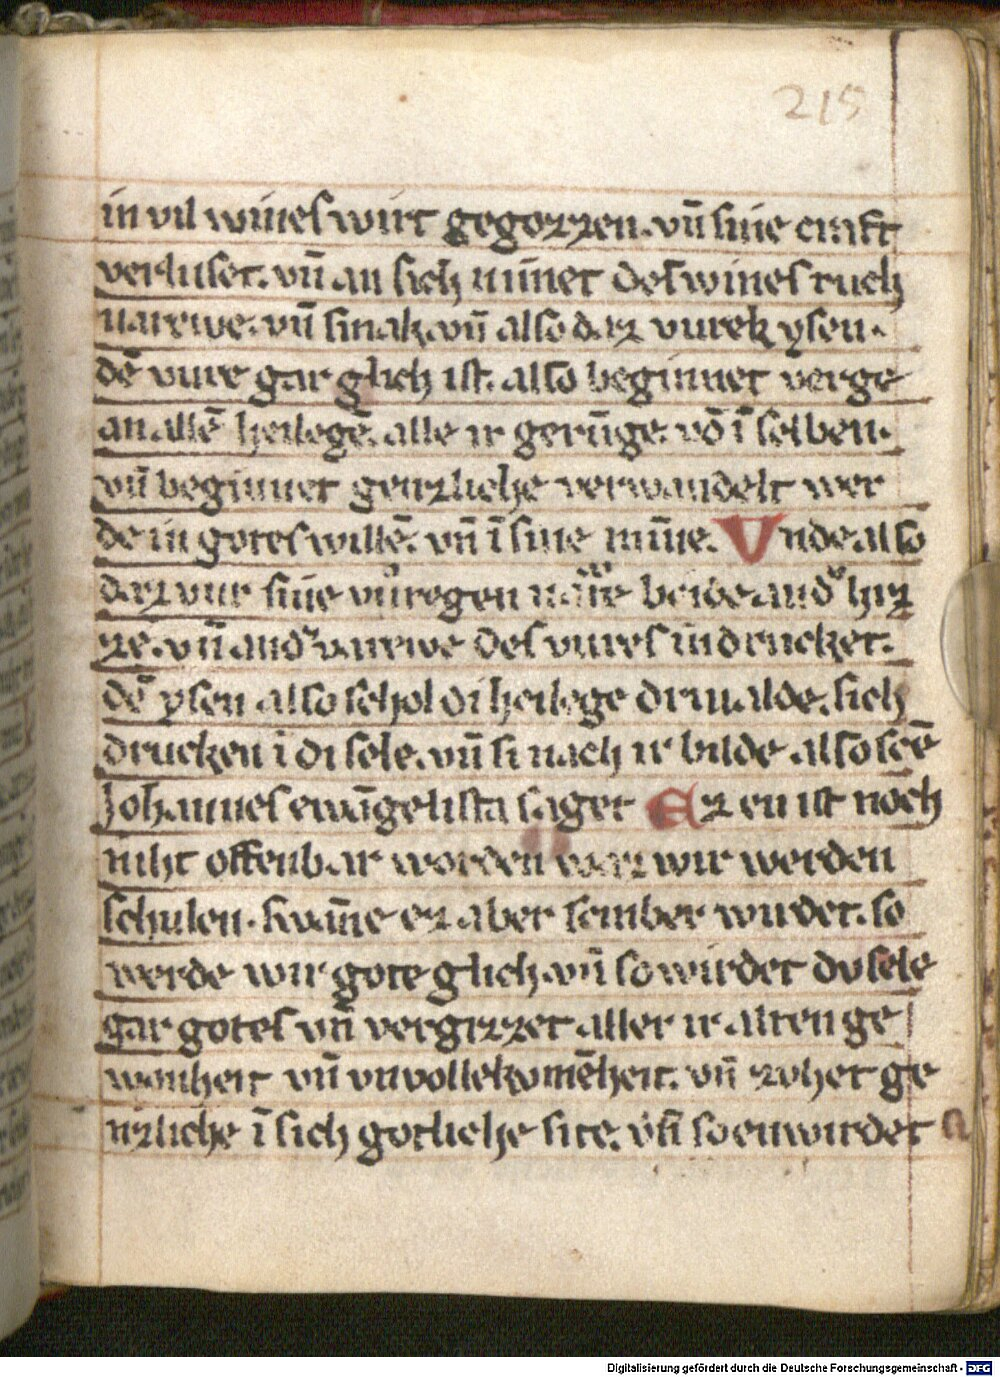 215
in vil wineſ wirt gegozzen. vñ ſine craft
verluſet. vñ an ſich nīmet deſ wineſ ruch
varewe. vñ ſmak. vñ alſo daz vurek yſen.
dē vure gar glich iſt. alſo beginnet verge
an allē heilegē. alle ir gerūge. vō ī ſelben.
vñ beginnet genzliche verwandelt wer
de in goteſ willē. vñ ī ſine mīne. Vnde alſo
daz vur ſine beide hiz
ze. vñ varewe deſ vureſ in drucket.
dē yſen alſo ſchol di heilege drivalde. ſich
drucken ī di ſele. vñ ſi nach ir bilde. alſo ſcē
Johanneſ ewāgeliſta ſaget Ez en iſt noch
niht offenbar worden waz wir werden
ſchulen. ſwāne ez aber ſwirdet. ſo
werde wir gote glich. vñ ſo wirdet dv ſele
gar goteſ vñ vergizzet aller ir alten ge
wonheit vñ vnvollekomēheit. vñ zvhet ge
nzliche ī ſich gotliche ſite. vñ ſo enwirdet
Digitalisierung gefördert durch die Deutsche Forschungsgemeinschaft - DFG